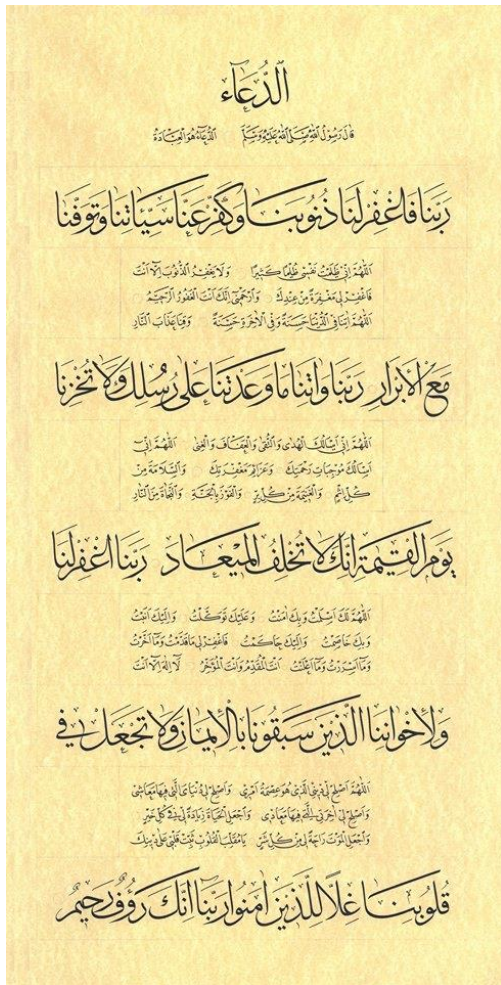 الدُّعَاء
قَالَ رَسُولُ اللّٰهِ صَلَّى اللّٰهُ عَلَيْهِ وَسَلَّمَ الدُّعَاءُ هُوَ الْعِبَادَةُ
رَبَّنَا فَاغْفِرْ لَنَا ذُنُوبَنَا وَكَفِّرْ عَنَّا سَيِّاٰتِنَا وَتَوَفَّنَا
اَللّٰهُمَّ اِنِّي ظَلَمْتُ نَفْسِي ظُلْمًا كَثِيرًا وَلَا يَغْفِرُ الذُّنُوبَ اِلَّا اَنْتَ
فَاغْفِرْ لِي مَغْفِرَةً مِنْ عِنْدِكَ وَارْحَمْنِي اِنَّكَ اَنْتَ الْغَفُورُ الرَّحِيمُ
اَللّٰهُمَّ اٰتِنَا فِي الدُّنْيَا حَسَنَةً وَفِي الْاٰخِرَةِ حَسَنَةً وَقِنَا عَذَابَ النَّارِ
مَعَ الْاَبْرَارِ رَبَّنَا وَاٰتِنَا مَا وَعَدْتَنَا عَلٰى رُسُلِكَ وَلَا تُخْزِنَا
اَللّٰهُمَّ اِنِّي اَسْاَلُكَ الْهُدٰى وَالتُّقٰى وَالْعَفَافَ وَالْغِنٰى اَللّٰهُمَّ اِنِّي
اَسْاَلُكَ مُوجِبَاتِ رَحْمَتِكَ وَعَزَائِمَ مَغْفِرَتِكَ وَالسَّلَامَةَ مِنْ
كُلِّ اِثْمٍ وَالْغَنِيمَةَ مِنْ كُلِّ بِرٍّ وَالْفَوْزَ بِالْجَنَّةِ وَالنَّجَاةَ مِنَ النَّارِ
يَوْمَ الْقِيٰمَةِ اِنَّكَ لَا تُخْلِفُ الْمِيعَادَ رَبَّنَا اغْفِرْ لَنَا
اَللّٰهُمَّ لَكَ اَسْلَمْتُ وَبِكَ اٰمَنْتُ وَعَلَيْكَ تَوَكَّلْتُ وَاِلَيْكَ اَنَبْتُ
وَبِكَ خَاصَمْتُ وَاِلَيْكَ حَاكَمْتُ فَاغْفِرْ لِي مَا قَدَّمْتُ وَمَا اَخَّرْتُ
وَمَا اَسْرَرْتُ وَمَا اَعْلَنْتُ اَنْتَ الْمُقَدِّمُ وَاَنْتَ الْمُؤَخِّرُ لَا اِلٰهَ اِلَّا اَنْتَ
وَلِاِخْوَانِنَا الَّذِينَ سَبَقُونَا بِالْاِيمَانِ وَلَا تَجْعَلْ فِي
اَللّٰهُمَّ اَصْلِحْ لِي دِينِي الَّذِي هُوَ عِصْمَةُ اَمْرِي وَاَصْلِحْ لِي دُنْيَايَ الَّتِي فِيهَا مَعَاشِي
وَاَصْلِحْ لِي اٰخِرَتِي الَّتِي فِيهَا مَعَادِي وَاجْعَلِ الْحَيَاةَ زِيَادَةً لِي فِي كُلِّ خَيْرٍ
وَاجْعَلِ الْمَوْتَ رَاحَةً لِي مِنْ كُلِّ شَرٍّ يَا مُقَلِّبَ الْقُلُوبِ ثَبِّتْ قَلْبِي عَلٰى دِينِكَ
قُلُوبِنَا غِلًّا لِلَّذِينَ اٰمَنُوا رَبَّنَا اِنَّكَ رَؤُفٌ رَحِيمٌ